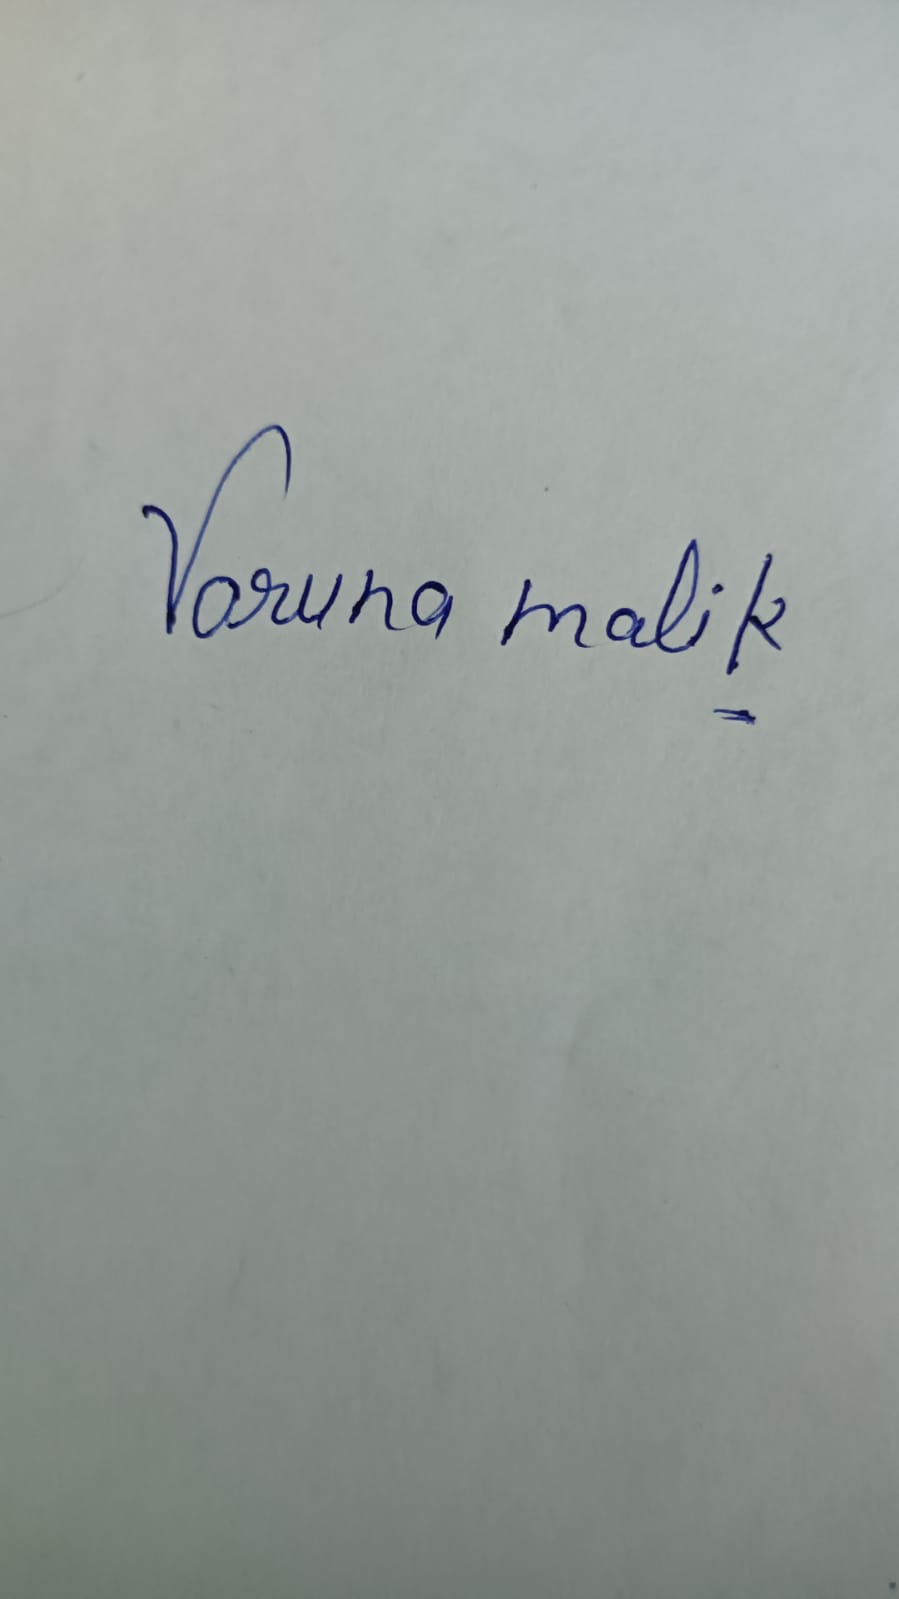 Varuna malik